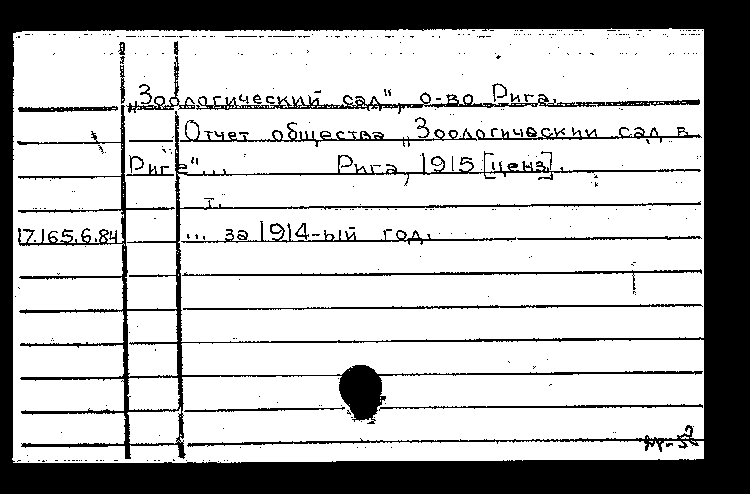 „Зоологический сад", о-во Рига.
Отчет общества „Зоологический сад в
Риге"... Рига, 1915 [ценз].
I.
17.165.6.84 ... за 1914-ый год.